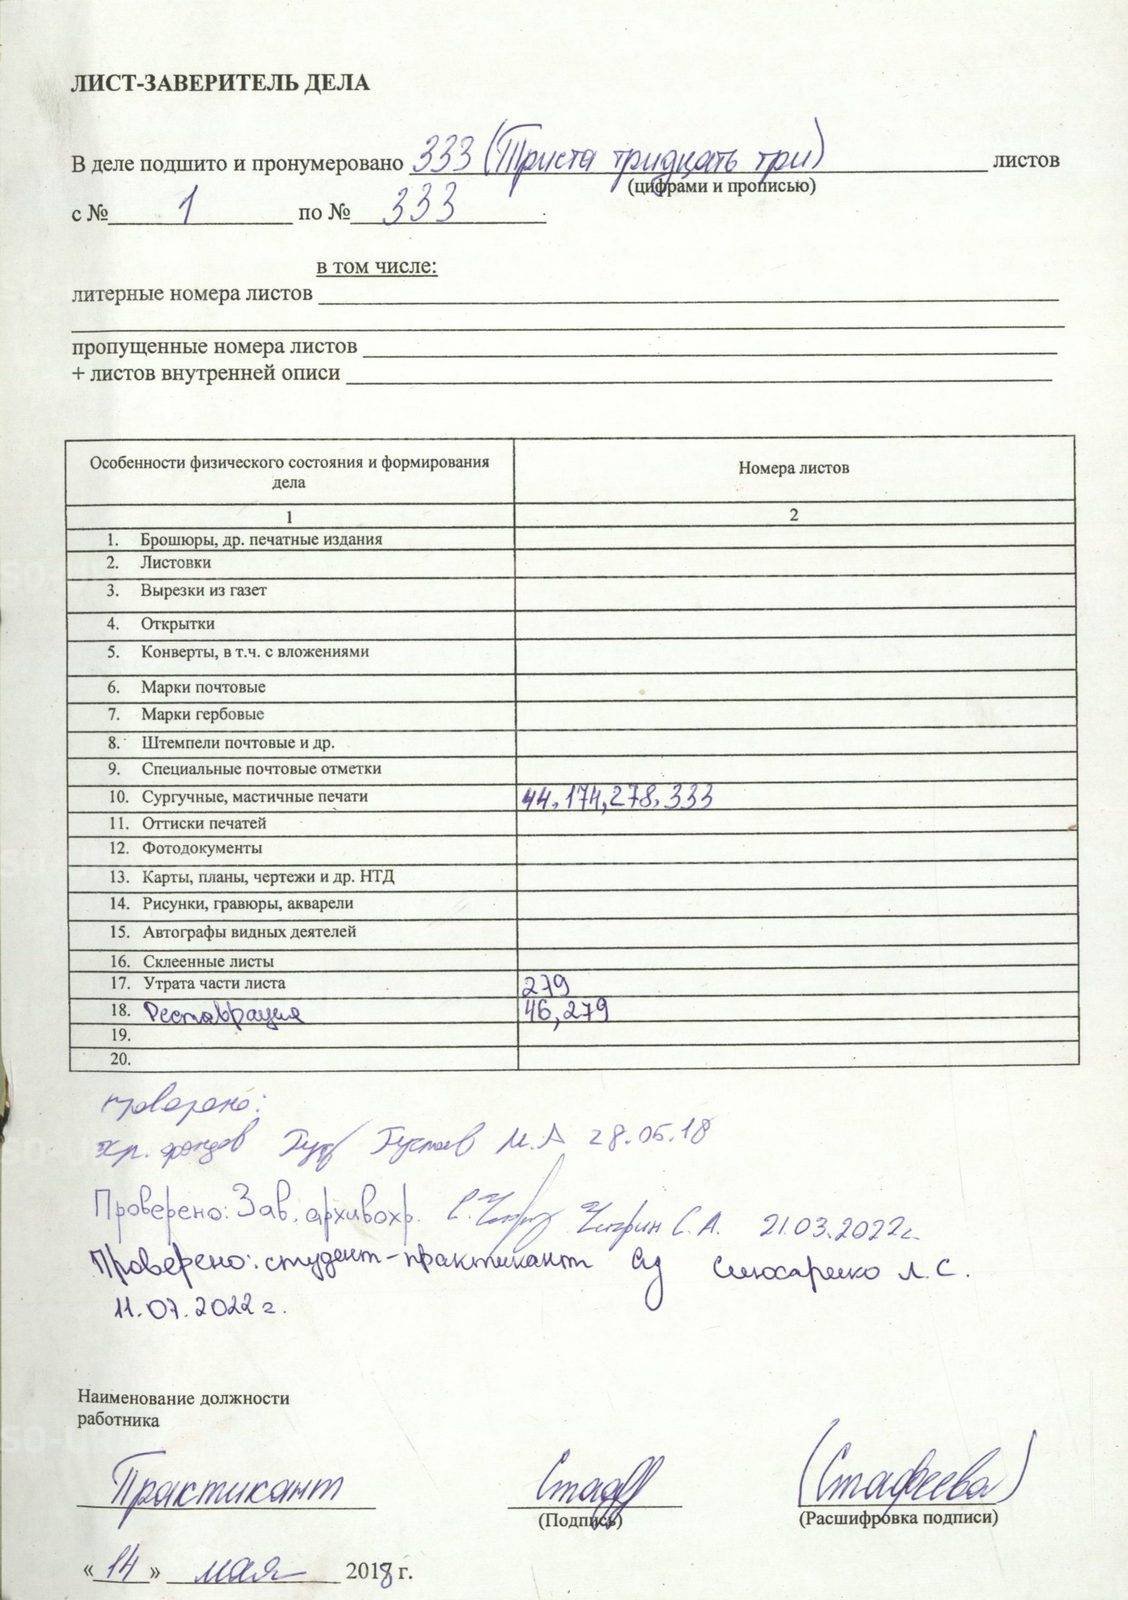 ЛИСТ-ЗАВЕРИТЕЛЬ ДЕЛА
В деле подшито и пронумеровано 333 (Триста тридцать три) листов
(цифрами и прописью)
с № 1 по № 333.
в том числе:
литерные номера листов
пропущенные номера листов
+ листов внутренней описи
Особенности физического состояния и формирования дела Номера листов
1 2
1. Брошюры, др. печатные издания
2. Листовки
3. Вырезки из газет
4. Открытки
5. Конверты, в т.ч. с вложениями
6. Марки почтовые
7. Марки гербовые
8. Штемпели почтовые и др.
9. Специальные почтовые отметки
10. Сургучные, мастичные печати 44, 174, 278, 333
11. Оттиски печатей
12. Фотодокументы
13. Карты, планы, чертежи и др. НТД
14. Рисунки, гравюры, акварели
15. Автографы видных деятелей
16. Склеенные листы
17. Утрата части листа 279
18. Реставрация 46, 279
19.
20.
Проверено:
хр. фондов М.А 28.05.18
Проверено: Зав. архивохр. Чигрин С.А. 21.03.2022г.
Проверено: студент-практикант Слюсаренко Л.С.
11.07.2022 г.
Наименование должности
работника
Практикант (Стафеева)
(Подпись) (Расшифровка подписи)
«14» мая 2018 г.